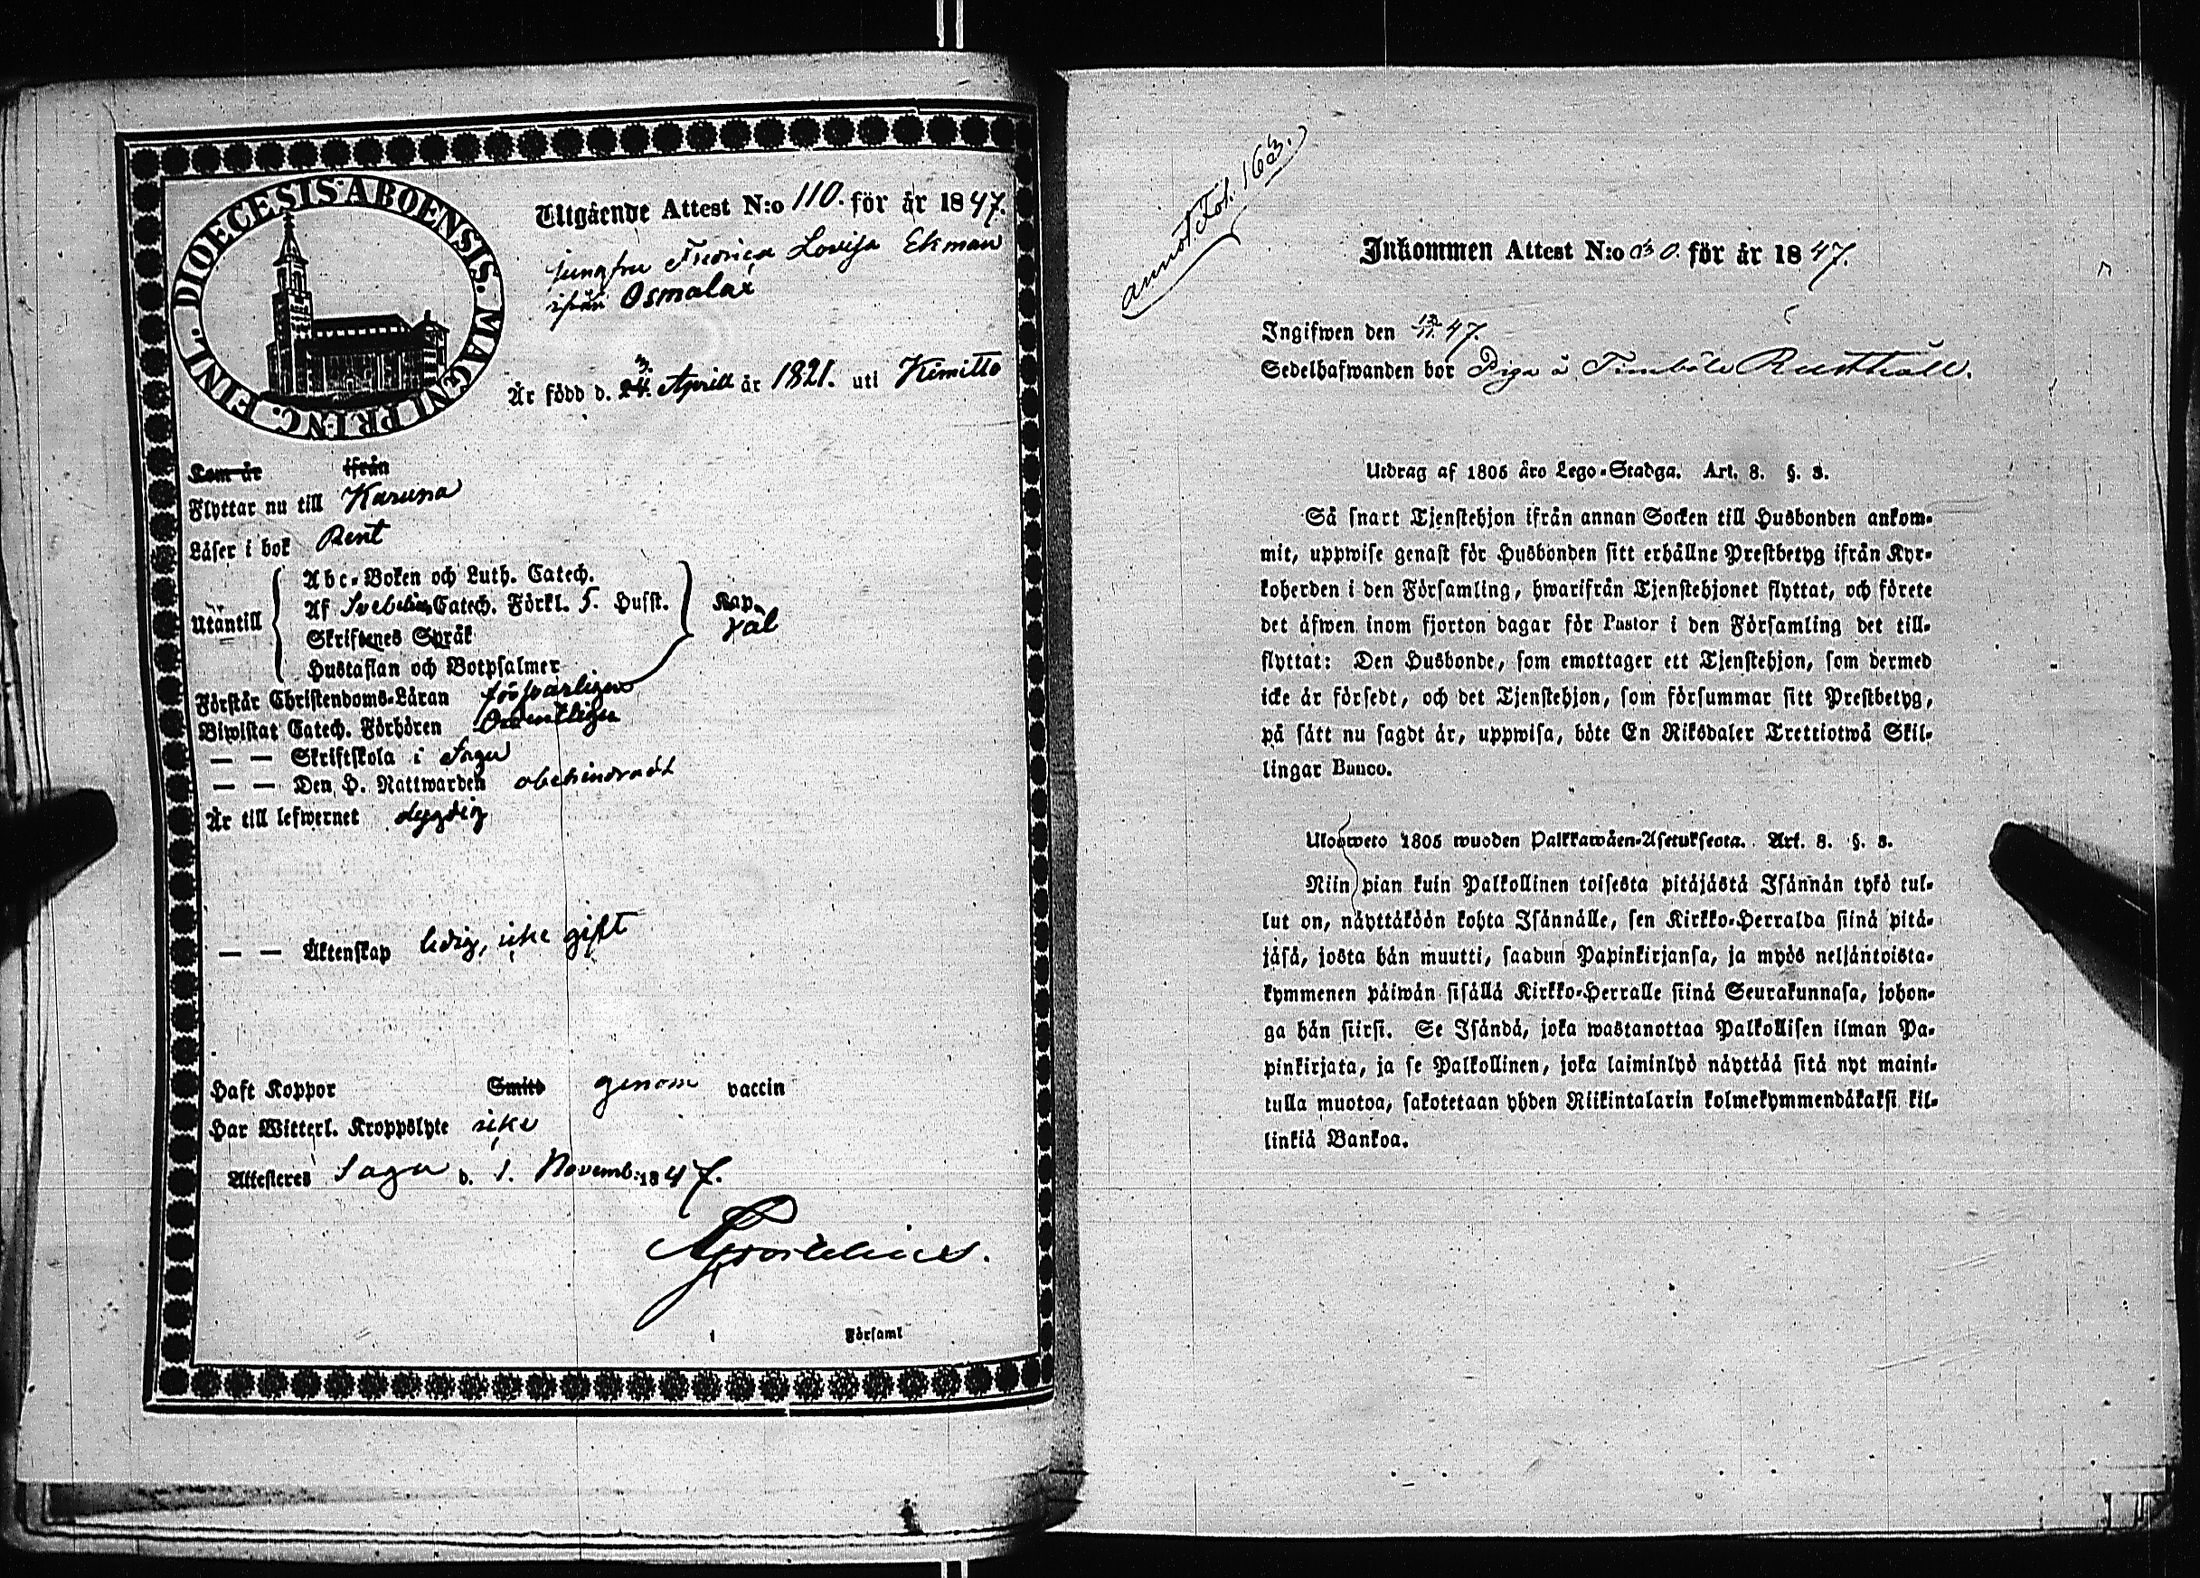 DIOECESIS ABOENSIS. MAGNI PRINC. FINL.
Utgående Attest N:o 110. för år 1847.
jungfru Fredrica Lovisa Ekman
ifrån Osmalax
Är född d. 3. Aprill år 1821. uti Kimitto
Som är ifrån
Flyttar nu till Karuna
Läser i bok Rent
Utantill
Abc-Boken och Luth. Catech.
Af Svebelii Catech. Förkl. 5. Husst. Kap.
väl
Skriftenes Språk
Hustaflan och Botpsalmer
Förstår Christendoms-Läran försvarligen
Biwistat Catech. Förhören Ordentligen
— — Skriftskola i Sagu
— — Den H. Nattwarden obehindradt
Är till lefwernet dygdig
— — Äktenskap ledig, icke gift
Haft Koppor Smitt genom vaccin
Har Witterl. Kroppslyte icke
Attesteres Sagu d. 1. Novemb. 1847.
i Församl
annot. Fol. 163.
Inkommen Attest N:o 30. för år 1847.
Ingifwen den 47.
Sedelhafwanden bor Piga å Timböle Rusthåll.
Utdrag af 1805 års Lego-Stadga. Art. 8. §. 3.
Så snart Tjenstehjon ifrån annan Socken till Husbonden ankom-
mit, uppwise genast för Husbonden sitt erhållne Prestbetyg ifrån Kyr-
koherden i den Församling, hwarifrån Tjenstehjonet flyttat, och förete
det äfwen inom fjorton dagar för Pastor i den Församling det till-
flyttat: Den Husbonde, som emottager ett Tjenstehjon, som dermed
icke är försedt, och det Tjenstehjon, som försummar sitt Prestbetyg,
på sätt nu sagdt är, uppwisa, böte En Riksdaler Trettiotwå Skil-
lingar Banco.
Ulosweto 1805 wuoden Palkkawäen-Asetuksesta. Art. 8. §. 3.
Niin pian kuin Palkollinen toisesta pitäjästä Isännän tykö tul-
lut on, näyttäköön kohta Isännälle, sen Kirkko-Herralda siinä pitä-
jäsä, josta hän muutti, saadun Papinkirjansa, ja myös neljäntoista-
kymmenen päiwän sisällä Kirkko-Herralle siinä Seurakunnasa, johon-
ga hän siirsi. Se Isändä, joka wastanottaa Palkollisen ilman Pa-
pinkirjata, ja se Palkollinen, joka laiminlyö näyttää sitä nyt maini-
tulla muotoa, sakotetaan yhden Riikintalarin kolmekymmendäkaksi kil-
linkiä Bankoa.